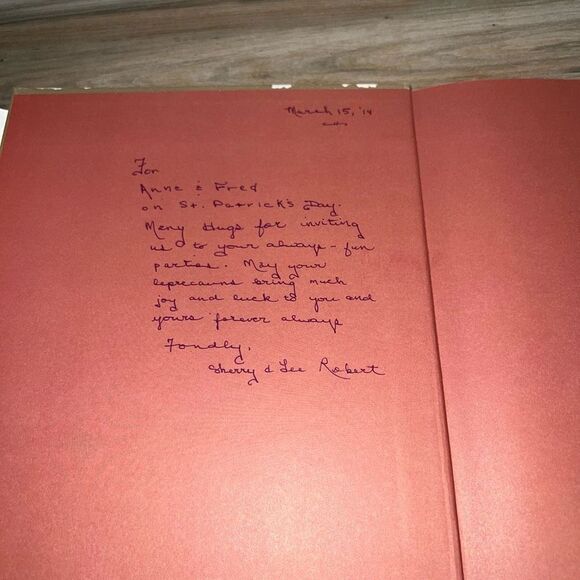 March 15, '14
For
Anne & Fred
on St. Patrick's Day.
Many Hugs for inviting
us to your always-fun
parties. May your
leprecauns bring much
joy and luck to you and
yours forever always
Fondly,
Sherry & Lee Robert